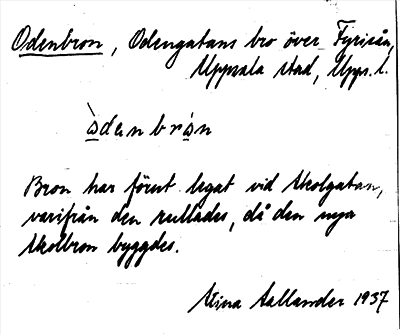 Odenbron, Odengatans bro över Fyrisån,
Uppsala stad, Upps. l.
òdɑnbrån
Bron har förut legat vid Skolgatan,
varifrån den rullades, då den nya
Skolbron byggdes.
Stina Hallander 1937